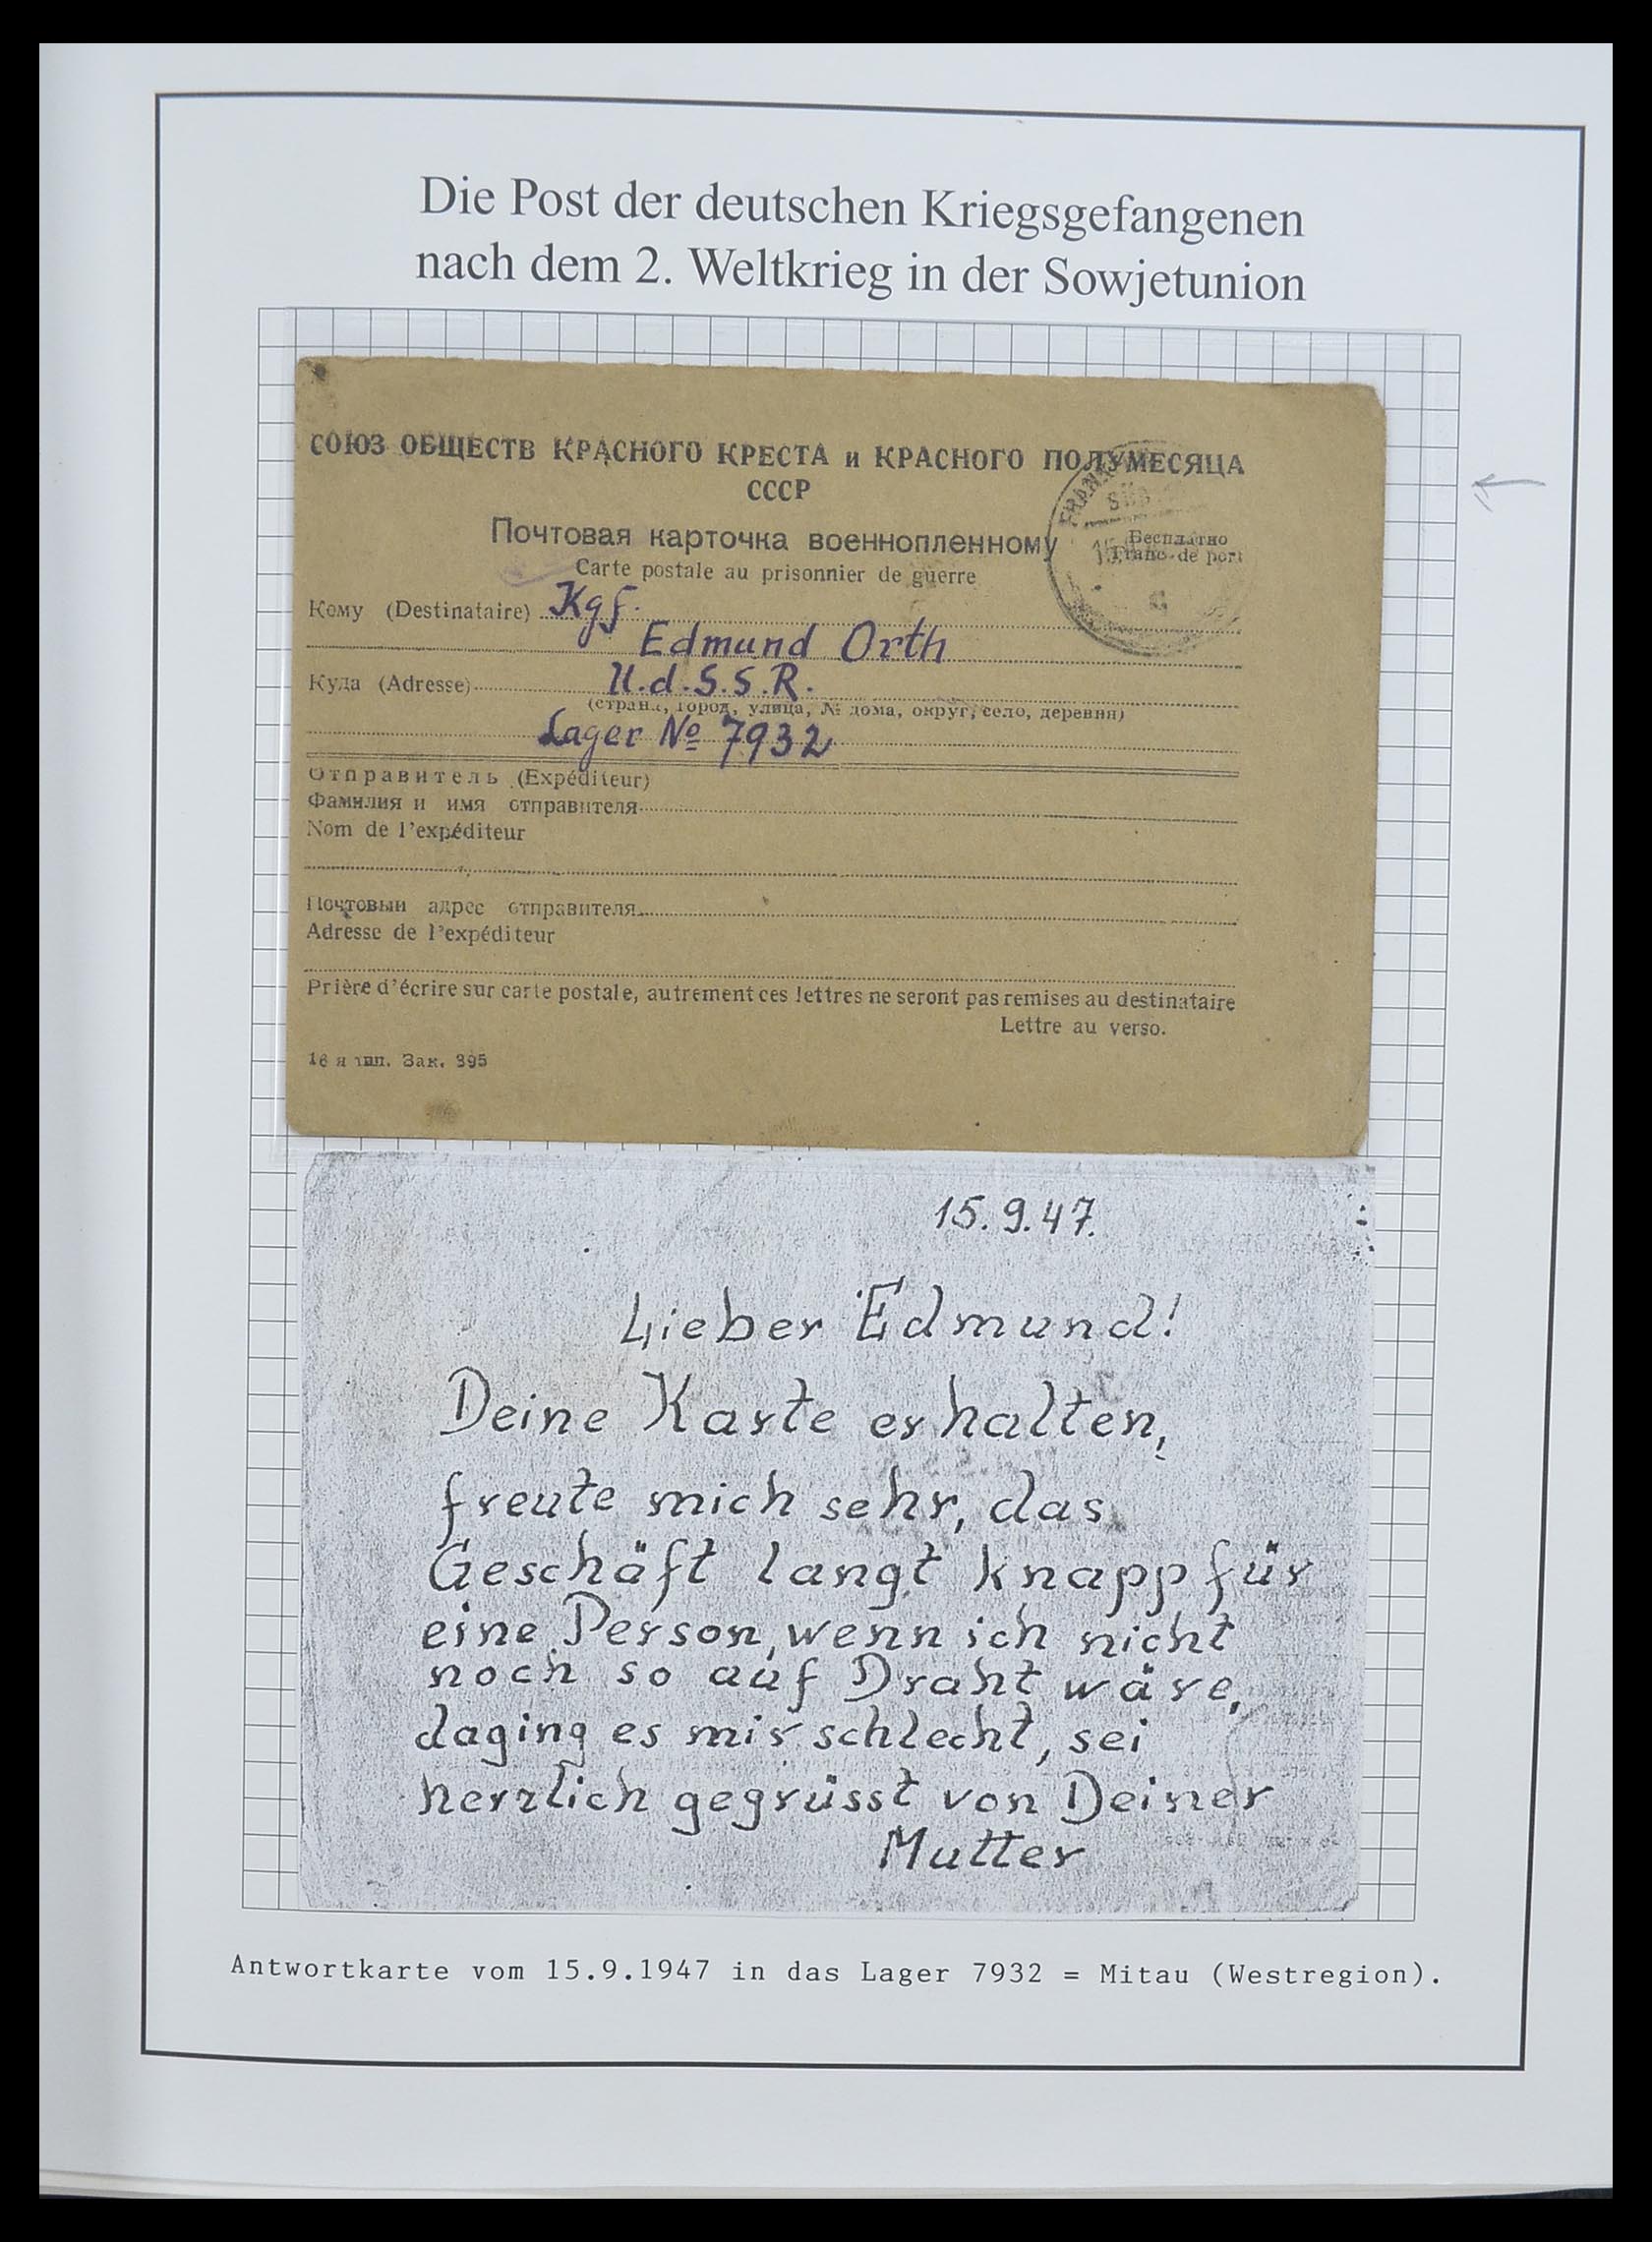 Die Post der deutschen Kriegsgefangenen
nach dem 2. Weltkrieg in der Sowjetunion
СОЮЗ ОБЩЕСТВ КРАСНОГО КРЕСТА и КРАСНОГО ПОЛУМЕСЯЦА
СССР
Почтовая карточка военнопленному
Бесплатно
Franc de port
Carte postale au prisonnier de guerre
Кому (Destinataire) Kgf.
Edmund Orth
Куда (Adresse) U.d.S.S.R.
(страна, город, улица, № дома, округ, село, деревня)
Lager № 7932
Отправитель (Expéditeur)
Фамилия и имя отправителя
Nom de l'expéditeur
Почтовый адрес отправителя
Adresse de l'expéditeur
Prière d'écrire sur carte postale, autrement ces lettres ne seront pas remises au destinataire
Lettre au verso.
16 я тип. Зак. 395
15.9.47.
Lieber Edmund!
Deine Karte erhalten,
freute mich sehr, das
Geschäft langt knapp für
eine Person, wenn ich nicht
noch so auf Draht wäre,
daging es mir schlecht, sei
herzlich gegrüsst von Deiner
Mutter
Antwortkarte vom 15.9.1947 in das Lager 7932 = Mitau (Westregion).